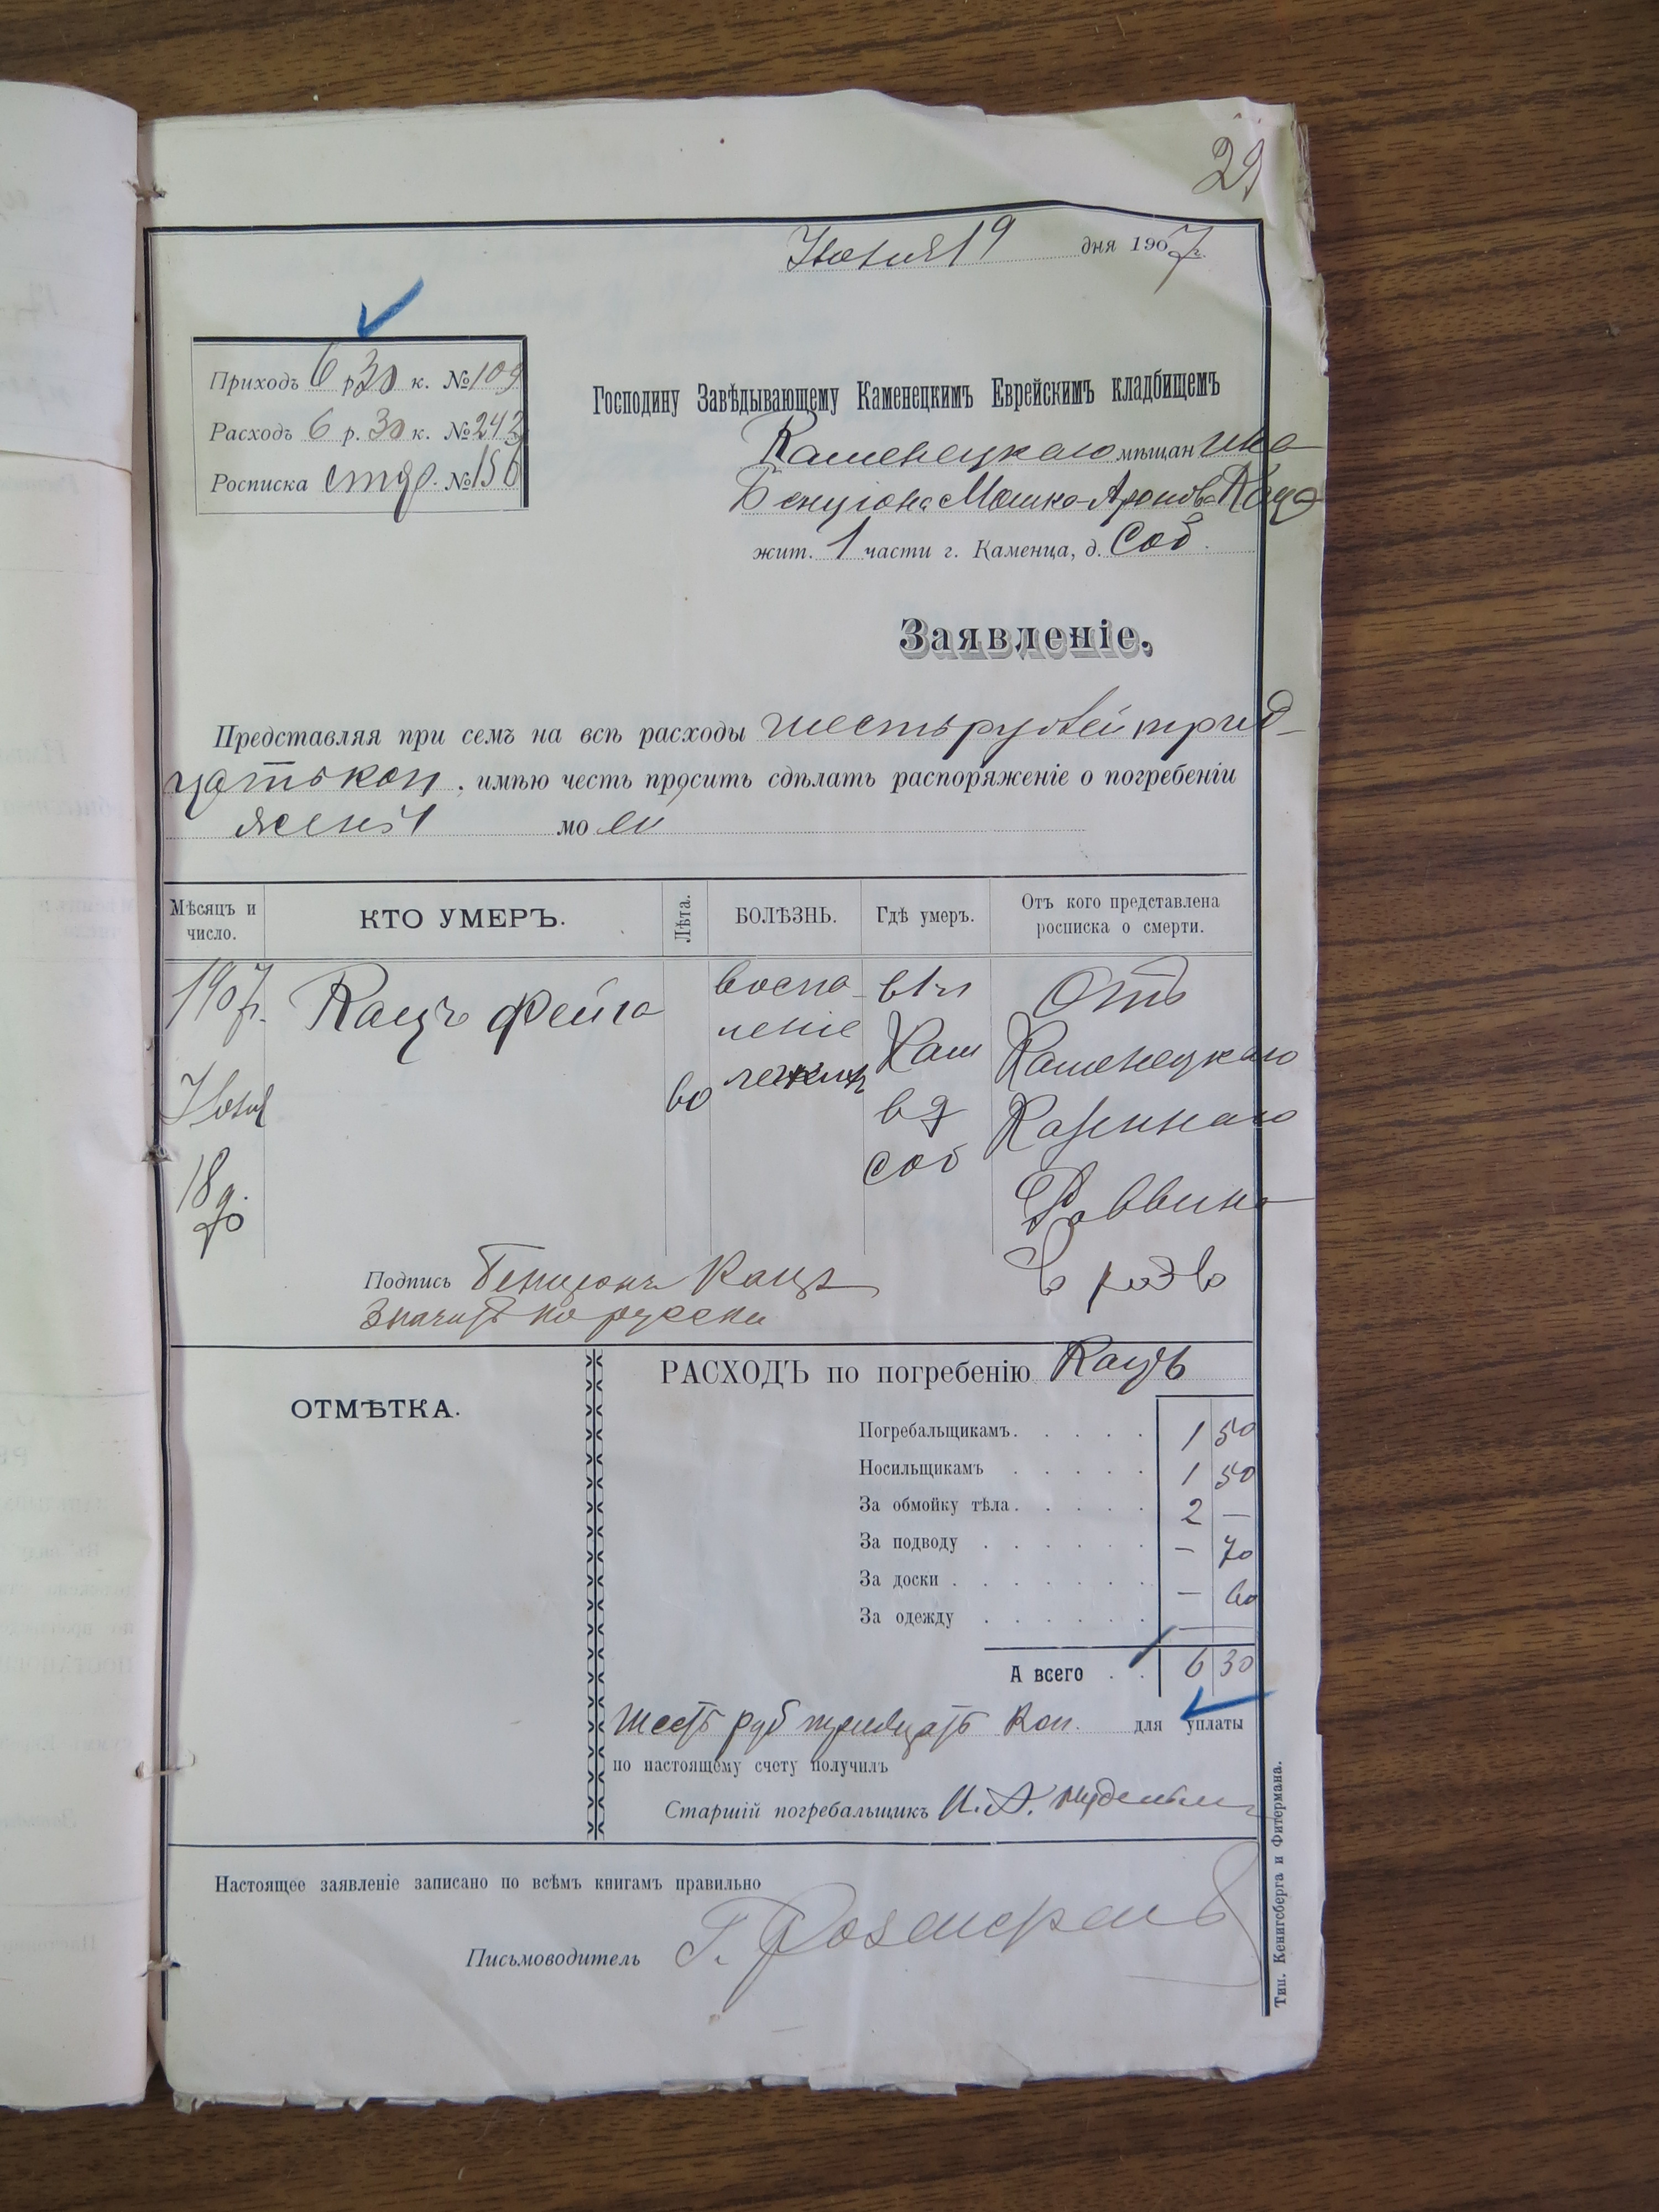 29
Июня 19 дня 1907 г.
Приходъ 6 р. 30 к. № 109
Расходъ 6 р. 30 к. № 242
Росписка №156
Господину Завѣдывающему Каменецкимъ Еврейскимъ кладбищемъ
Каменецкаго мѣщанина
Бенціона Мошко-Аронова Каца
жит. 1 части г. Каменца, д. Соб.
Заявленіе.
Представляя при семъ на всѣ расходы шесть рублей трид-
цать коп, имѣю честь просить сдѣлать распоряженіе о погребеніи
жены моей
Мѣсяцъ и число.
КТО УМЕРЪ.
Лѣта.
БОЛѢЗНЬ.
Гдѣ умеръ.
Отъ кого представлена росписка о смерти.
1907 г.
Июня
18 д.
Кацъ Фейга
60
воспа-
леніе
легкихъ
въ г
Кам
в д
соб
Отъ
Каменецкаго
Казеннаго
Раввина
Подпись Бенціонъ Кацъ
значитъ по русски
ОТМѢТКА.
РАСХОДЪ по погребенію Кацъ
Погребальщикамъ. 1 50
Носильщикамъ 1 50
За обмойку тѣла. 2 —
За подводу — 70
За доски — 60
За одежду
А всего 6 30
Шесть руб тридцать коп. для уплаты
по настоящему счету получилъ
Старшій погребальщикъ
Настоящее заявленіе записано по всѣмъ книгамъ правильно
Письмоводитель Г.
Тип. Кенигсберга и Фитермана.